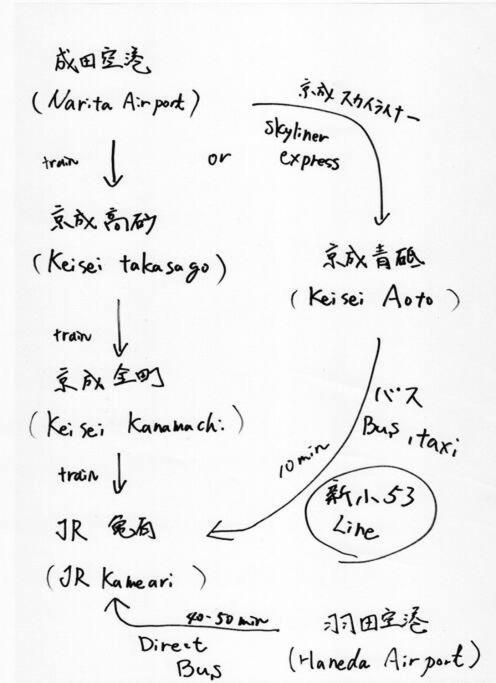 成田空港
(Narita Airport)
京成スカイライナー
skyliner
express
train
or
京成高砂
(Keisei takasago)
京成青砥
(Keisei Aoto)
train
京成金町
(Keisei Kanamachi)
バス
Bus, taxi
10min
train
新小53
Line
JR 亀有
(JR Kameari)
40-50min
Direct
Bus
羽田空港
(Haneda Airport)